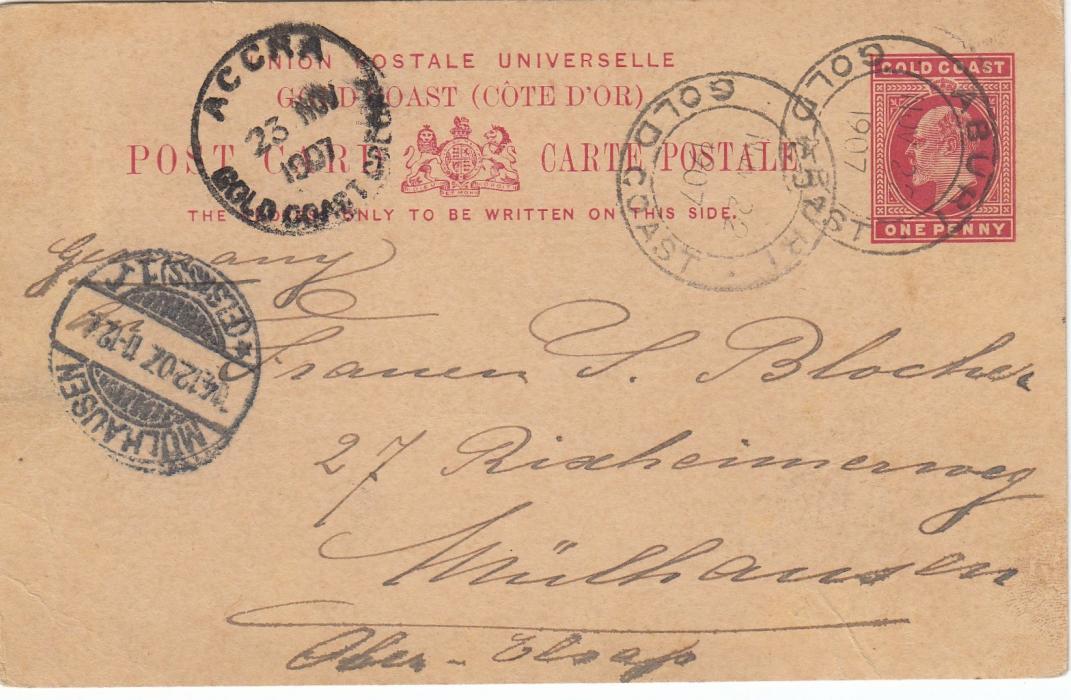 UNION POSTALE UNIVERSELLE
GOLD COAST (CÔTE D'OR)
POST CARD CARTE POSTALE
THE ADDRESS ONLY TO BE WRITTEN ON THIS SIDE.
GOLD COAST
ONE PENNY
ACCRA
23 NOV
1907
GOLD COAST
ABURI
GOLD COAST
1907
ABURI
GOLD COAST
22
1907
MÜLHAUSEN
12.07. 11-12
(ELSASS)
Germany
Frauen S. Blocher
27 Rixheimerweg
Mülhausen
Ober-Elsaß